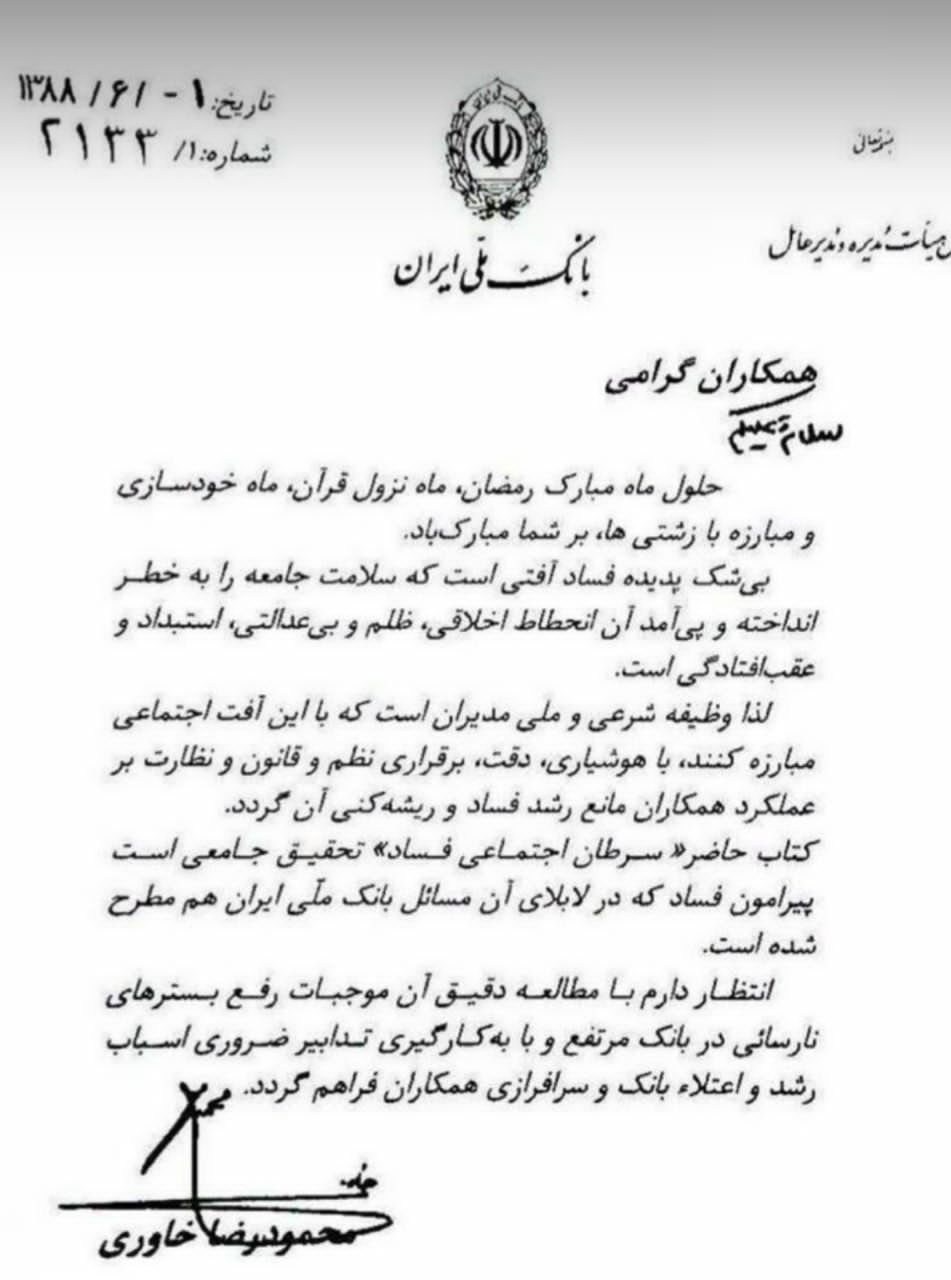 تاریخ: ۱-/۶/۱۳۸۸
شماره: ۱/ ۲۱۳۳
بسمه‌تعالی
هیأت مدیره و مدیر عامل
بانک ملّی ایران
همکاران گرامی
سلام علیکم
حلول ماه مبارک رمضان، ماه نزول قرآن، ماه خودسازی
و مبارزه با زشتی ها، بر شما مبارک‌باد.
بی‌شک پدیده فساد آفتی است که سلامت جامعه را به خطر
انداخته و پی‌آمد آن انحطاط اخلاقی، ظلم و بی‌عدالتی، استبداد و
عقب‌افتادگی است.
لذا وظیفه شرعی و ملی مدیران است که با این آفت اجتماعی
مبارزه کنند، با هوشیاری، دقت، برقراری نظم و قانون و نظارت بر
عملکرد همکاران مانع رشد فساد و ریشه‌کنی آن گردد.
کتاب حاضر« سرطان اجتماعی فساد» تحقیق جامعی است
پیرامون فساد که در لابلای آن مسائل بانک ملّی ایران هم مطرح
شده است.
انتظار دارم با مطالعه دقیق آن موجبات رفع بسترهای
نارسائی در بانک مرتفع و با به‌کارگیری تدابیر ضروری اسباب
رشد و اعتلاء بانک و سرافرازی همکاران فراهم گردد.
محمودرضا خاوری